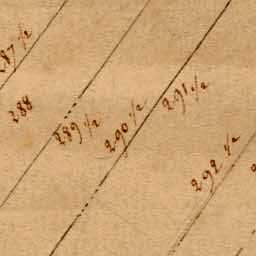 287 1/2
288
289 1/2
290 1/2
291 1/2
292 1/2